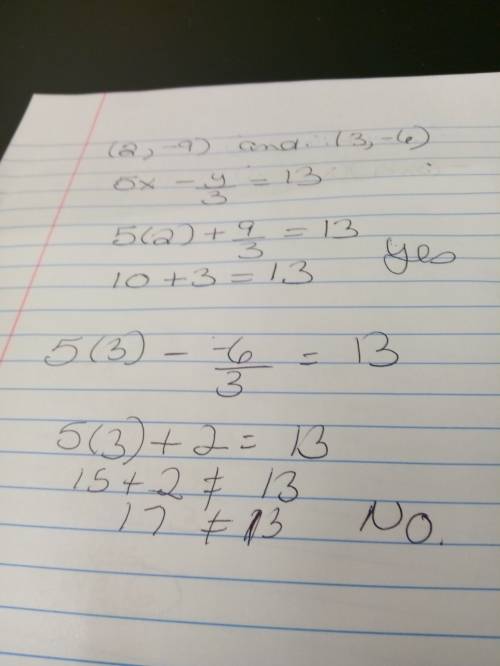 (2, -9) and (3, -6)
5x - y/3 = 13
5(2) + 9/3 = 13
10 + 3 = 13 yes
5(3) - -6/3 = 13
5(3) + 2 = 13
15 + 2 ≠ 13
17 ≠ 13 NO.